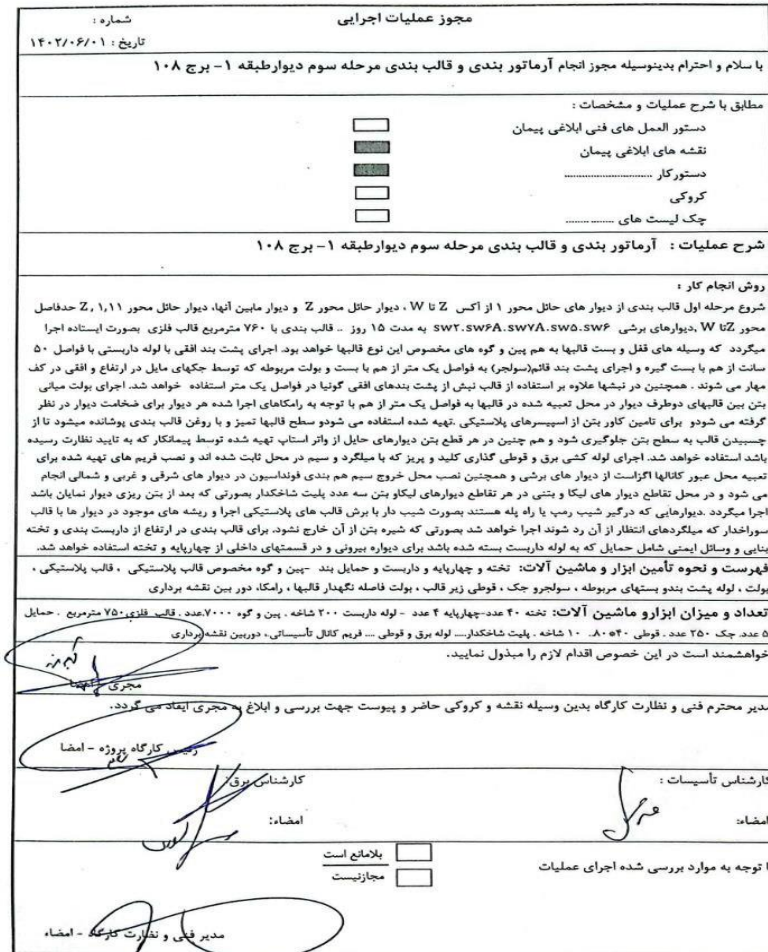 مجوز عملیات اجرایی
شماره :
تاریخ : ۱۴۰۲/۰۶/۰۱
با سلام و احترام بدینوسیله مجوز انجام آرماتور بندی و قالب بندی مرحله سوم دیوارطبقه ۱- برج ۱۰۸
مطابق با شرح عملیات و مشخصات :
دستور العمل های فنی ابلاغی پیمان
نقشه های ابلاغی پیمان
دستورکار ..............................
کروکی
چک لیست های ................
شرح عملیات : آرماتور بندی و قالب بندی مرحله سوم دیوارطبقه ۱- برج ۱۰۸
روش انجام کار :
شروع مرحله اول قالب بندی از دیوار های حائل محور ۱ از آکس Z تا W ، دیوار حائل محور Z و دیوار مابین آنها، دیوار حائل محور Z, ۱,۱۱ حدفاصل
محور Zتا W ,دیوارهای برشی sw۲.sw۶A.sw۷A.sw۵.sw۶ به مدت ۱۵ روز .. قالب بندی با ۷۶۰ مترمربع قالب فلزی بصورت ایستاده اجرا
میگردد که وسیله های قفل و بست قالبها به هم پین و گوه های مخصوص این نوع قالبها خواهد بود. اجرای پشت بند افقی با لوله داربستی با فواصل ۵۰
سانت از هم با بست گیره و اجرای پشت بند قائم(سولجر) به فواصل یک متر از هم با بست و بولت مربوطه که توسط جکهای مایل در ارتفاع و افقی در کف
مهار می شوند . همچنین در نبشها علاوه بر استفاده از قالب نبش از پشت بندهای افقی گونیا در فواصل یک متر استفاده خواهد شد. اجرای بولت میانی
بتن بین قالبهای دوطرف دیوار در محل تعبیه شده در قالبها به فواصل یک متر از هم با توجه به رامکاهای اجرا شده هر دیوار برای ضخامت دیوار در نظر
گرفته می شودو برای تامین کاور بتن از اسپیسرهای پلاستیکی .تهیه شده استفاده می شودو سطح قالبها تمیز و با روغن قالب بندی پوشانده میشود تا از
چسبیدن قالب به سطح بتن جلوگیری شود و هم چنین در هر قطع بتن دیوارهای حایل از واتر استاپ تهیه شده توسط پیمانکار که به تایید نظارت رسیده
باشد استفاده خواهد شد. اجرای لوله کشی برق و قوطی گذاری کلید و پریز که با میلگرد و سیم در محل ثابت شده اند و نصب فریم های تهیه شده برای
تعبیه محل عبور کانالها اگزاست از دیوار های برشی و همچنین نصب محل خروج سیم هم بندی فونداسیون در دیوار های شرقی و غربی و شمالی انجام
می شود و در محل تقاطع دیوار های لیکا و بتنی در هر تقاطع دیوارهای لیکاو بتن سه عدد پلیت شاخکدار بصورتی که بعد از بتن ریزی دیوار نمایان باشد
اجرا میگردد .دیوارهایی که درگیر شیب رمپ یا راه پله هستند بصورت شیب دار با برش قالب های پلاستیکی اجرا و ریشه های موجود در دیوار ها با قالب
سوراخدار که میلگردهای انتظار از آن رد شوند اجرا خواهد شد بصورتی که شیره بتن از آن خارج نشود. برای قالب بندی در ارتفاع از داربست بندی و تخته
بنایی و وسائل ایمنی شامل حمایل که به لوله داربست بسته شده باشد برای دیواره بیرونی و در قسمتهای داخلی از چهارپایه و تخته استفاده خواهد شد.
فهرست و نحوه تأمین ابزار و ماشین آلات: تخته و چهارپایه و داربست و حمایل بند -پین و گوه مخصوص قالب پلاستیکی ، قالب پلاستیکی ،
بولت ، لوله پشت بندو بستهای مربوطه ، سولجرو جک ، قوطی زیر قالب ، بولت فاصله نگهدار قالبها ، رامکا، دور بین نقشه برداری
تعداد و میزان ابزارو ماشین آلات: تخته ۴۰ عدد-چهارپایه ۴ عدد - لوله داربست ۲۰۰ شاخه . پین و گوه ۷۰۰۰عدد . قالب فلزی۷۵۰ مترمربع . حمایل
۵ عدد. جک ۲۵۰ عدد . قوطی ۴۰*۸۰. ۱۰ شاخه . پلیت شاخکدار.... لوله برق و قوطی .... فریم کانال تأسیساتی، دوربین نقشه برداری
خواهشمند است در این خصوص اقدام لازم را مبذول نمایید.
مجری - امضا
مدیر محترم فنی و نظارت کارگاه بدین وسیله نقشه و کروکی حاضر و پیوست جهت بررسی و ابلاغ به مجری ایفاد می گردد.
رئیس کارگاه پروژه - امضا
کارشناس تأسیسات :
کارشناس برق:
امضاء:
امضاء:
با توجه به موارد بررسی شده اجرای عملیات
بلامانع است
مجازنیست
مدیر فنی و نظارت کارگاه - امضاء